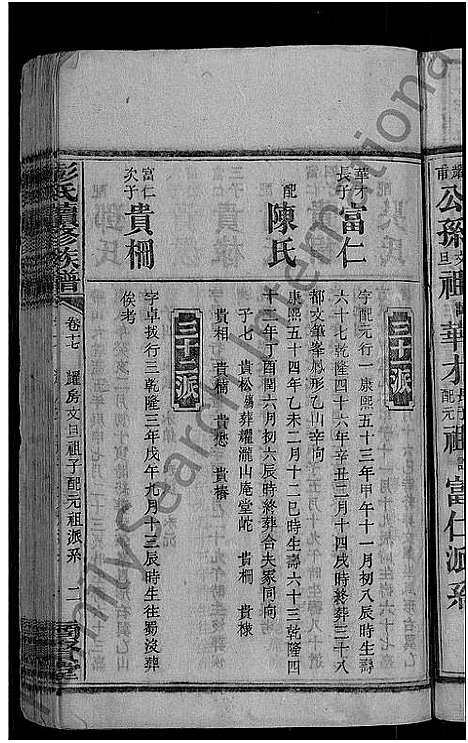 公孫文旦祖 華才長子配元祖 富仁派系
三十一派
華才長子 富仁
字配元行一康熙五十三年甲午十一月初八辰時生壽
六十七乾隆四十六年辛丑三月十四戌時終葬三千八
都文筆峯鳳形乙山辛向
配 陳氏
康熙五十四年乙未二月十二巳時生壽六十三乾隆四
十二年丁酉閏六月初六辰時終葬合夫冢同向
子七 貴松殤葬耀瀧山庵堂屹 貴棡 貴棣
貴相 貴楠 貴懋 貴椿
三十二派
富仁次子 貴棡
字卓拔行三乾隆三年戊午九月十三辰時生往蜀沒葬
俟考
彭氏續修族譜 卷十七 耀房文旦祖子配元祖派系 二